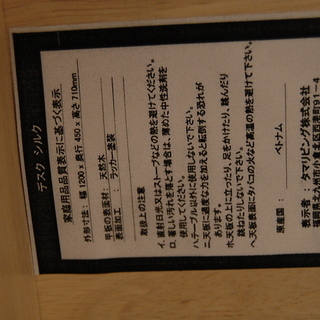 デスク シルク
家庭用品品質表示に基づく表示
外形寸法： 幅 1200 x 奥行 450 x 高さ 710mm
甲板の表面材： 天然木
表面加工 ： ラッカー塗装
取扱上の注意
イ.直射日光又はストーブなどの熱を避けてください。
ロ.著しい汚れを落とす場合は、薄めた中性洗剤を
使用してください。
ハ.テーブル以外に使用しないで下さい。
ニ.天板に過度な力を加えると転倒する恐れが
あります。
ホ.天板の上に立ったり、足をかけたり、踏んだり
跳ねたりしないで下さい。
ヘ.天板表面にタバコの火など高温の熱を避けて下さい。
原産国 ： ベトナム
表示者 ： ヤマリビング株式会社
福岡県北九州市小倉北区西港町91-4